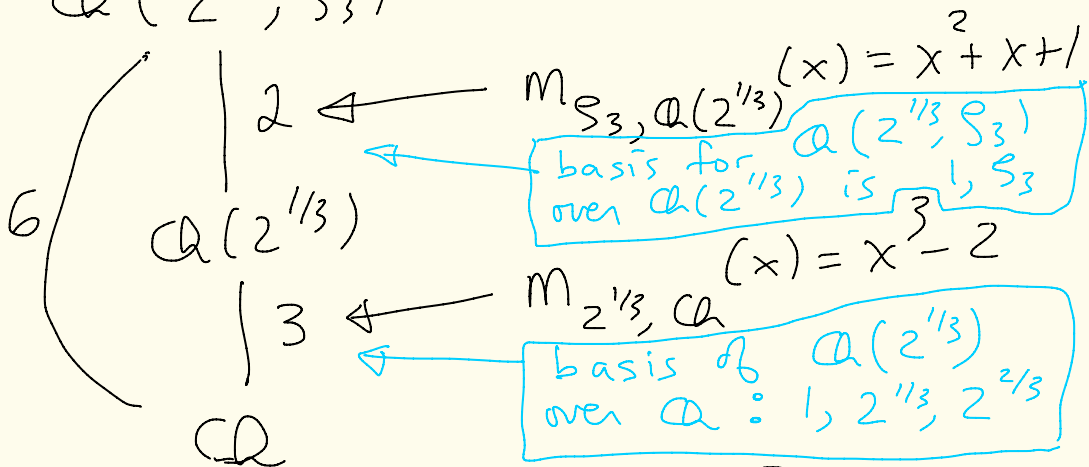 ℚ(2 , ζ₃)
2 ← m_{ζ₃, ℚ(2^{1/3})}(x) = x² + x + 1
basis for ℚ(2^{1/3}, ζ₃)
over ℚ(2^{1/3}) is 1, ζ₃
6
ℚ(2^{1/3})
3 ← m_{2^{1/3}, ℚ}(x) = x³ - 2
basis of ℚ(2^{1/3})
over ℚ : 1, 2^{1/3}, 2^{2/3}
ℚ